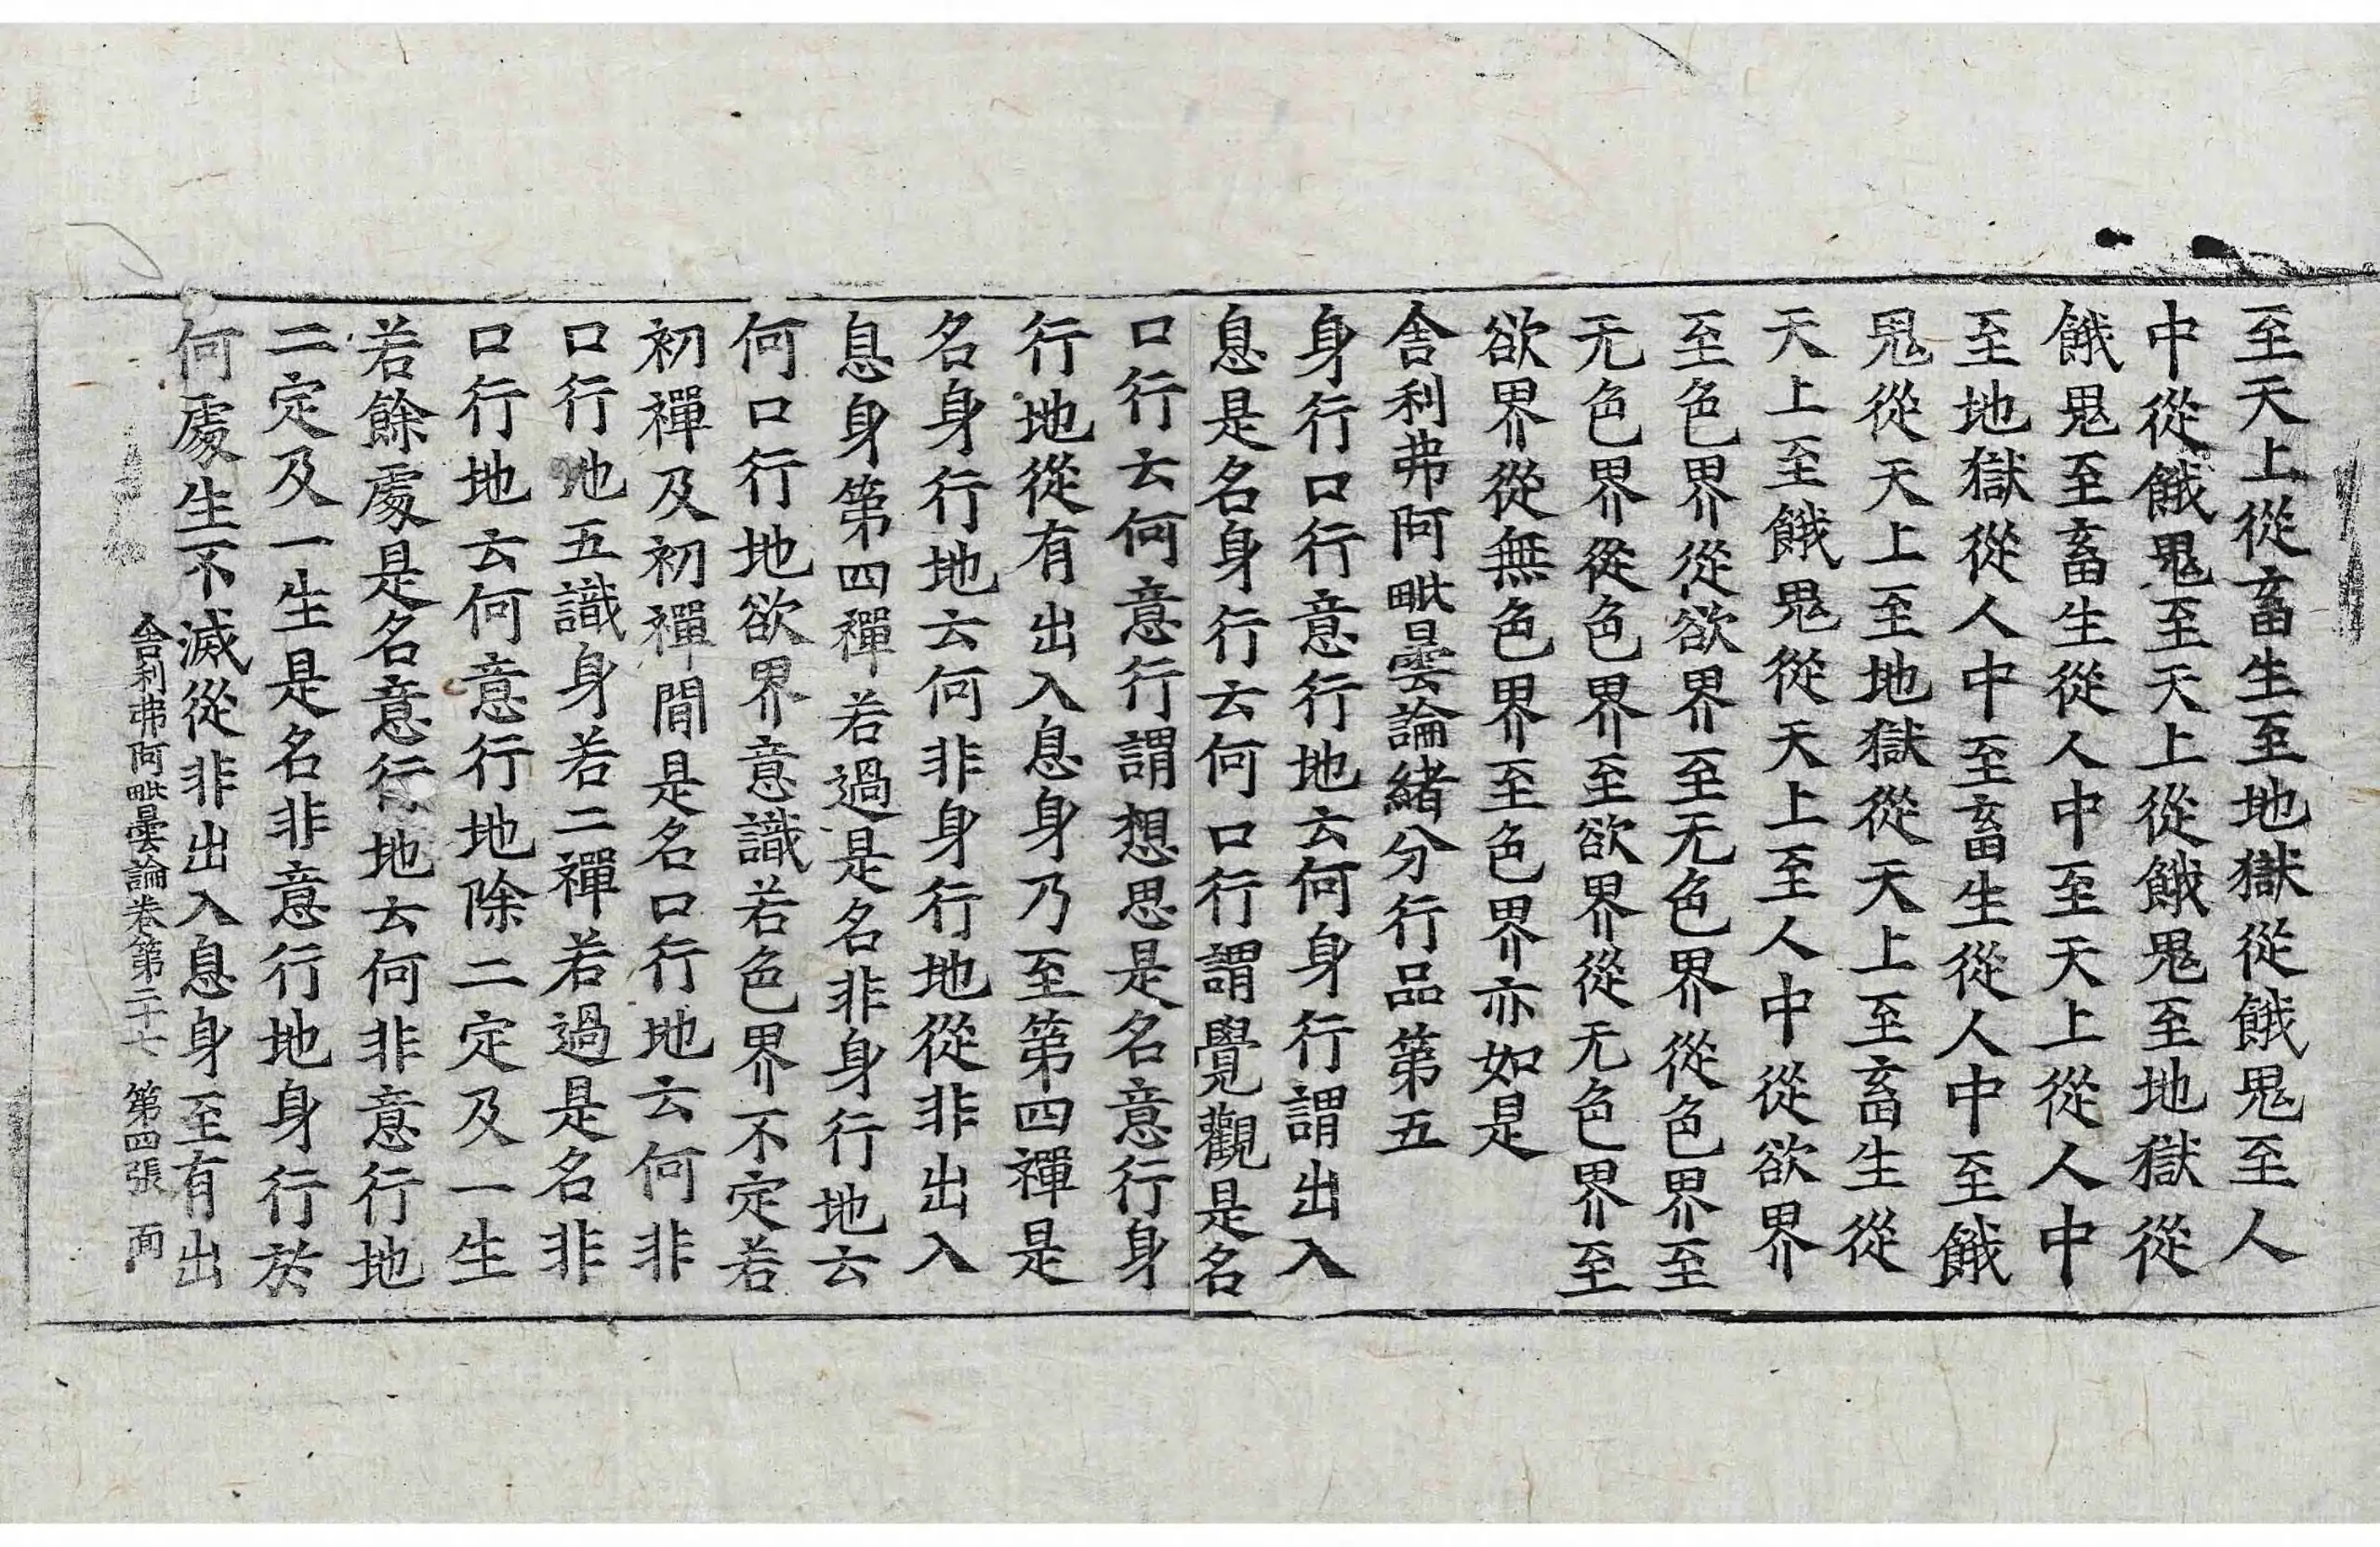 至天上從畜生至地獄從餓鬼至人
中從餓鬼至天上從餓鬼至地獄從
餓鬼至畜生從人中至天上從人中
至地獄從人中至畜生從人中至餓
鬼從天上至地獄從天上至畜生從
天上至餓鬼從天上至人中從欲界
至色界從欲界至无色界從色界至
无色界從色界至欲界從无色界至
欲界從無色界至色界亦如是
舍利弗阿毗曇論緒分行品第五
身行口行意行地云何身行謂出入
息是名身行云何口行謂覺觀是名
口行云何意行謂想思是名意行身
行地從有出入息身乃至第四禪是
名身行地云何非身行地從非出入
息身第四禪若過是名非身行地云
何口行地欲界意識若色界不定若
初禪及初禪間是名口行地云何非
口行地五識身若二禪若過是名非
口行地云何意行地除二定及一生
若餘處是名意行地云何非意行地
二定及一生是名非意行地身行於
何處生不滅從非出入息身至有出
舍利弗阿毗曇論卷第二十七 第四張 𠕋